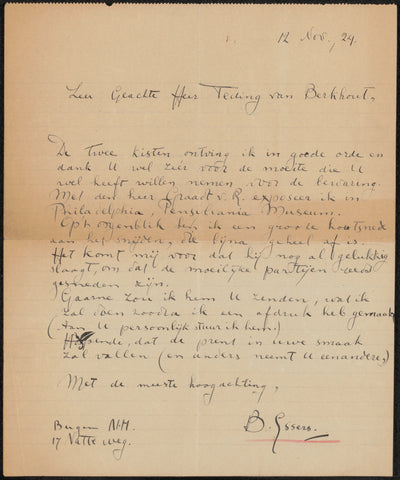 12 Nov. 24.
Zeer Geachte Heer Teding van Berkhout,
De twee kisten ontving ik in goede orde en
dank U wel zeer voor de moeite die U
wel heeft willen nemen voor de bewaring.
Met den heer Graadt v. R. exposeer ik in
Philadelphia, Pensilvania Museum.
Op 't oogenblik ben ik een groote houtsnede
aan het snijden, die bijna geheel af is.
Het komt mij voor dat hij nog al gelukkig
slaagt, om dat de moeilijke partijen
gesneden zijn.
Gaarne zou ik hem U zenden, wat ik
zal doen zoodra ik een afdruk heb gemaakt
(Aan U persoonlijk stuur ik hem.)
Hopende, dat de prent in uwe smaak
zal vallen (en anders neemt U een andere)
Met de meeste hoogachting,
B. Essers.
N.H.
17 weg.